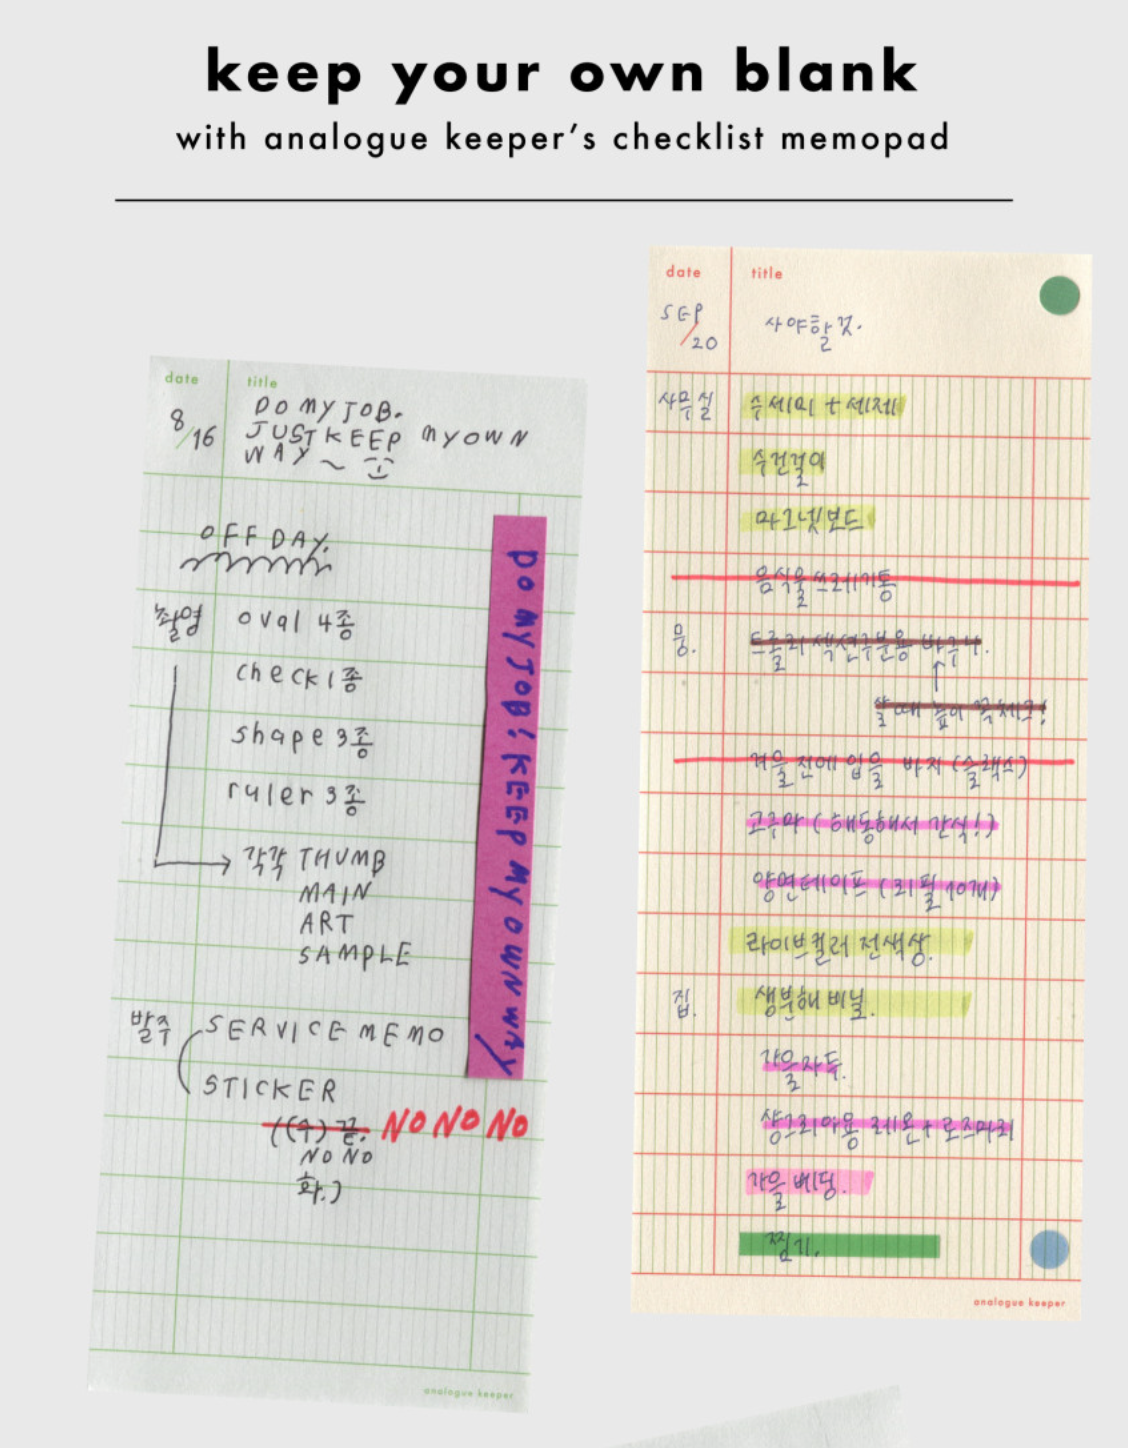 keep your own blank
with analogue keeper's checklist memopad
date
title
8/16
DO MY JOB.
JUST KEEP MY OWN
WAY ~
OFF DAY.
촬영
oval 4종
check 1종
shape 3종
ruler 3종
각각 THUMB
MAIN
ART
SAMPLE
발주
SERVICE MEMO
STICKER
((수) 끝. NO NO NO
NO NO
화.)
DO MY JOB! KEEP MY OWN WAY
analogue keeper
date
title
SEP/20
사야할 것.
사무실
수세미 + 세제
수건걸이
마그넷보드
음식물 쓰레기통
몽.
트롤리 섹션구분용 바구니.
살 때 높이 꼭 체크!
겨울 전에 입을 바지 (슬랙스)
고구마 (해동해서 간식!)
양면테이프 (리필 10개)
라이브컬러 전색상.
집.
생분해 비닐.
가을자두.
샹그리아용 레몬 + 로즈마리
가을 베딩.
찜기.
analogue keeper